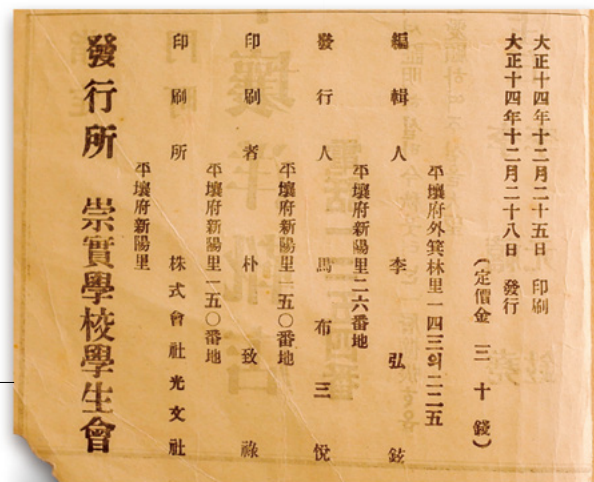 大正十四年十二月二十五日 印刷
大正十四年十二月二十八日 發行
(定價金 三十錢)
平壤府外箕林里一四三의二二五
編輯人 李弘鉉
平壤府新陽里二六番地
發行人 馬布三悅
平壤府新陽里一五〇番地
印刷者 朴致祿
平壤府新陽里一五〇番地
印刷所 株式會社光文社
平壤府新陽里
發行所 崇實學校學生會